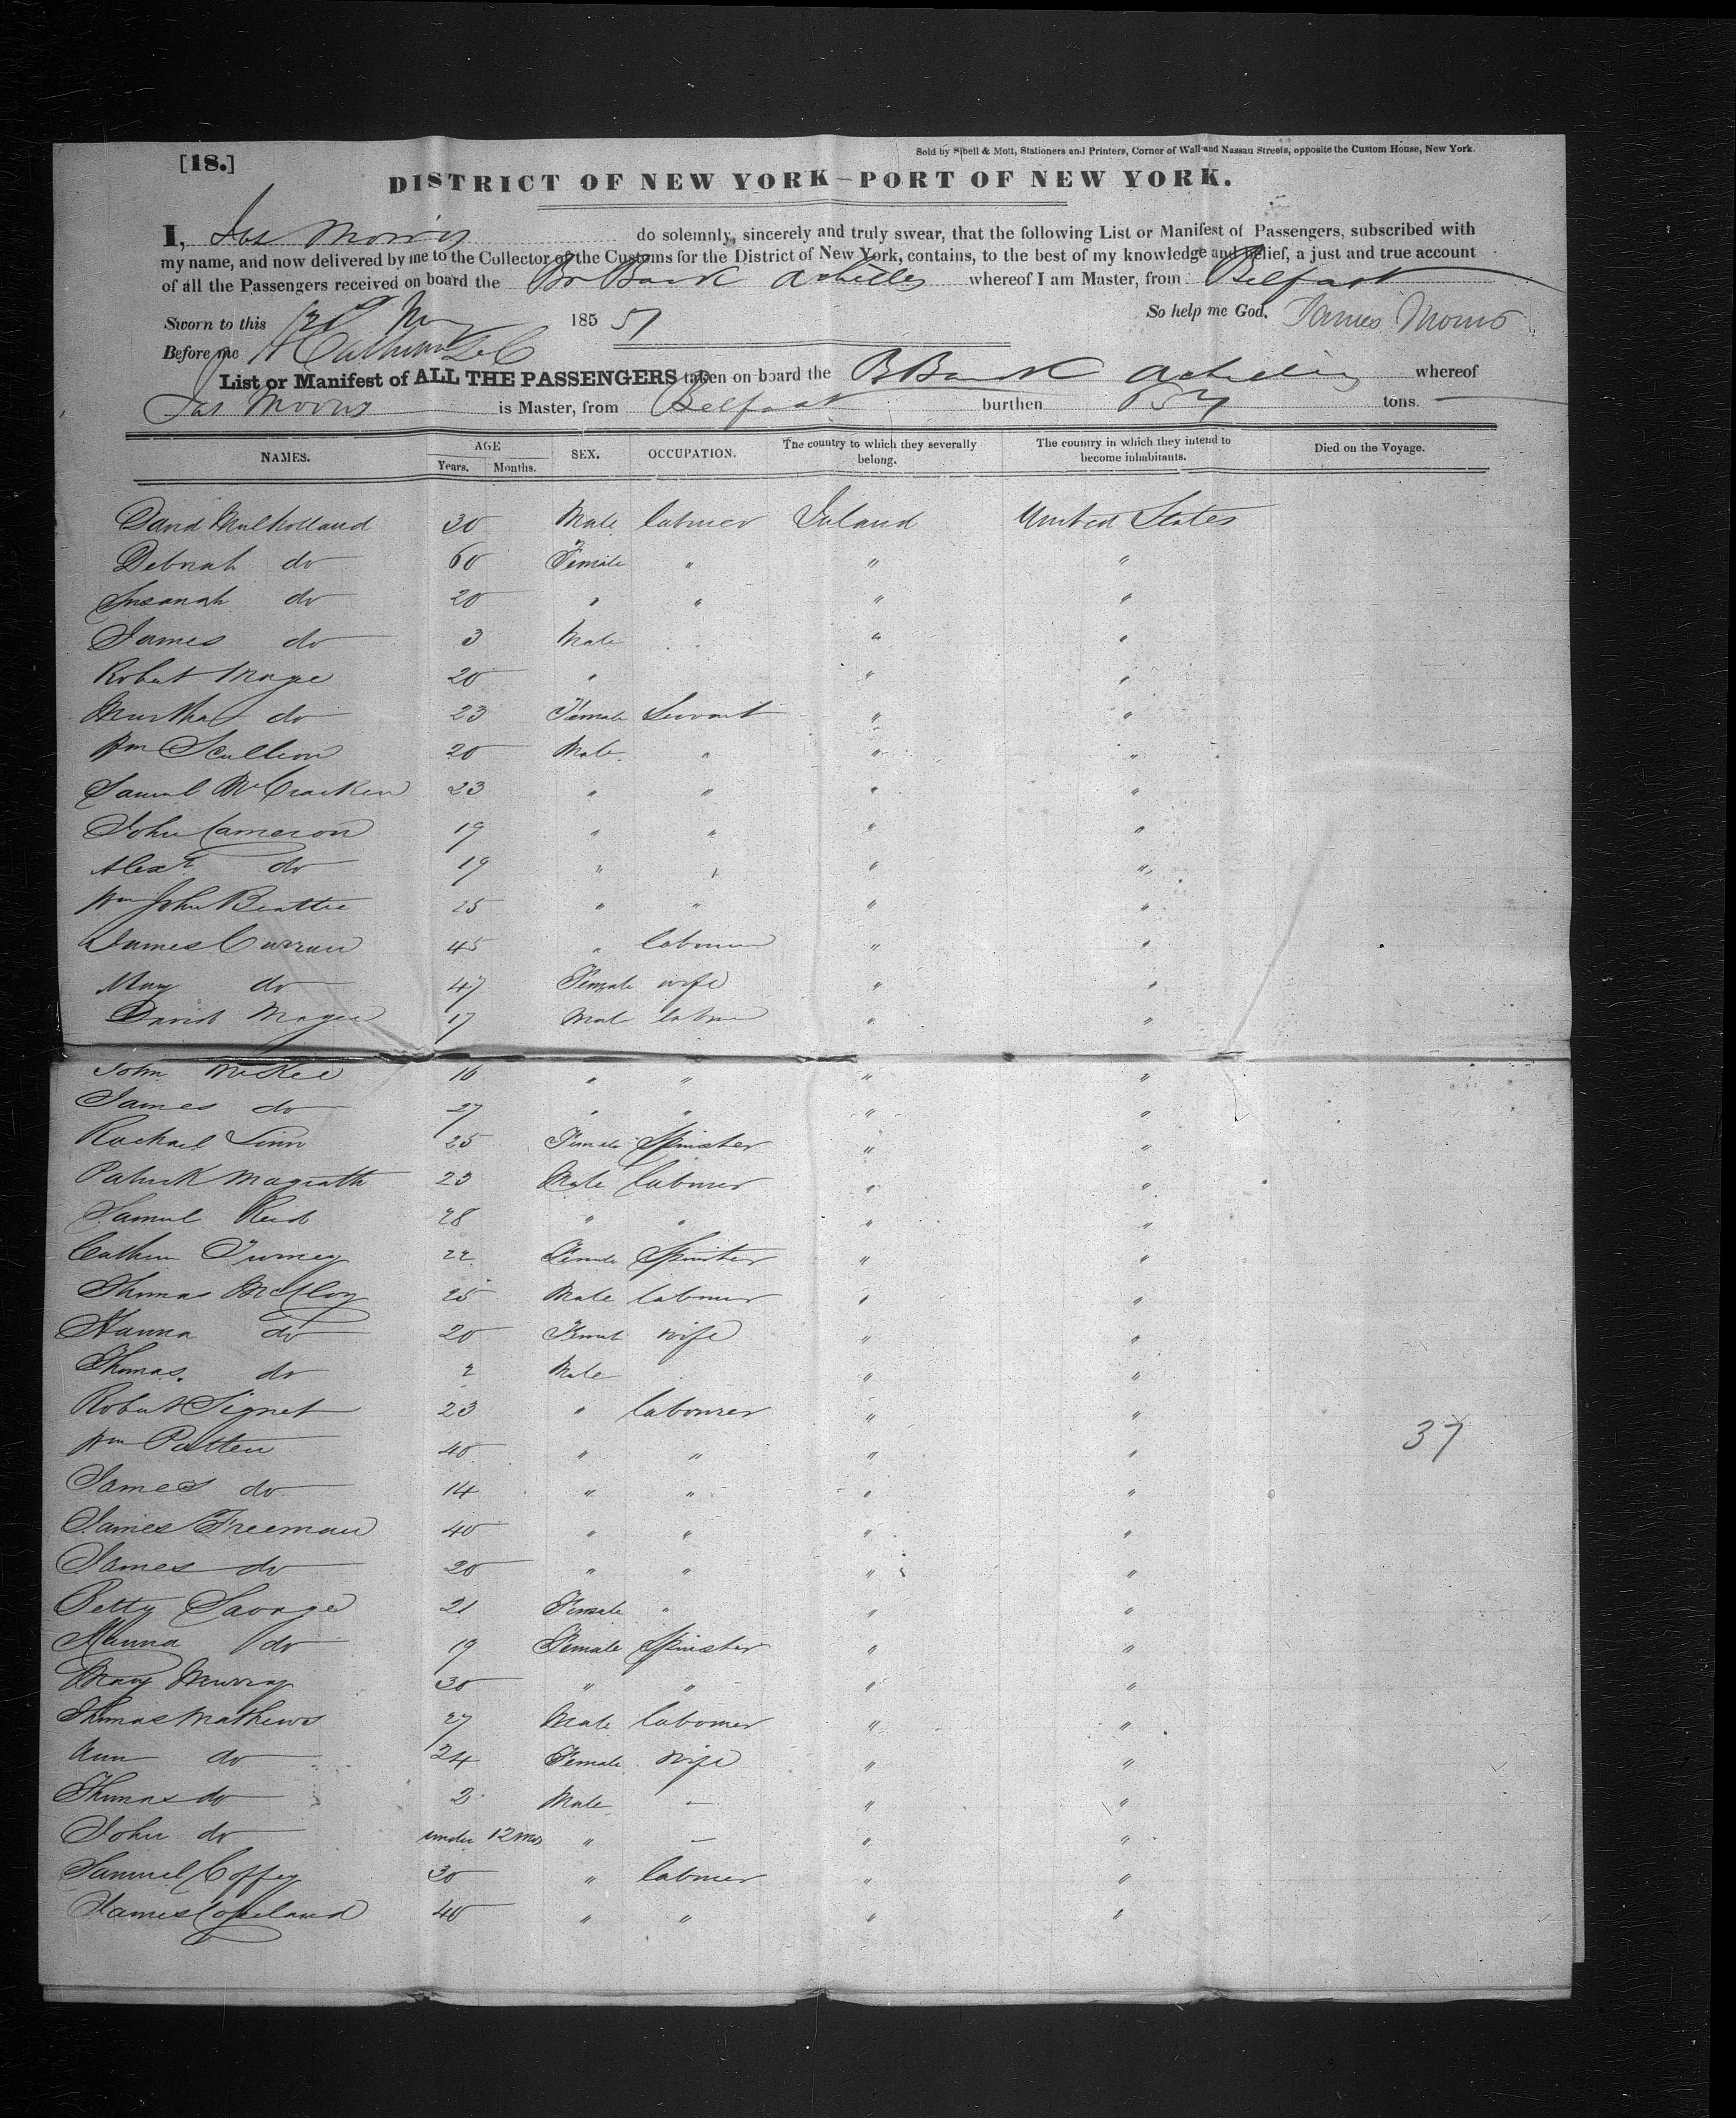 [18.]
Sold by Sibell & Mott, Stationers and Printers, Corner of Wall and Nassau Streets, opposite the Custom House, New York.
DISTRICT OF NEW YORK—PORT OF NEW YORK.
I, Jas Morris do solemnly, sincerely and truly swear, that the following List or Manifest of Passengers, subscribed with
my name, and now delivered by me to the Collector of the Customs for the District of New York, contains, to the best of my knowledge and belief, a just and true account
of all the Passengers received on board the Br Bark Achilles whereof I am Master, from Belfast
Sworn to this 185 51 So help me God. James Morris
Before me
List or Manifest of ALL THE PASSENGERS taken on board the B Bark Achilles whereof
Jas Morris is Master, from Belfast burthen tons.
NAMES. AGE Years. Months. SEX. OCCUPATION. The country to which they severally belong. The country in which they intend to become inhabitants. Died on the Voyage.
David Mulholland 30 Male labourer Ireland United States
Deborah do 60 Female " " "
Susanah do 20 " " " "
James do 3 Male " "
Robert Magee 20 " " "
Martha do 23 Female Servant " "
Wm Scullion 20 Male " " "
Samuel McCracken 23 " " " "
John Cameron 19 " " " "
Alexr do 19 " " " "
Wm John Beattie 25 " " " "
James Curran 45 " labourer " "
Mary do 47 Female wife " "
David Magee 17 Male labourer " "
John McKee 16 " " " "
James do 27 " " " "
Rachael Linn 25 Female Spinster " "
Patrick Magrath 23 Male labourer " "
Samuel Reid 28 " " " "
Female Spinster " "
Thomas McIlroy 25 Male labourer " "
Hanna do 20 Female wife " "
Thomas. do 2 Male " "
Robert Signet 23 " labourer " "
Wm Patten 40 " " " " 37
James do 14 " " " "
James Freeman 40 " " " "
James do 20 " " " "
Betty Savage 21 Female " " "
Hanna do 19 Female Spinster " "
Mary Murray 30 " " " "
Thomas Mathews 27 Male labourer " "
Ann do 24 Female wife " "
Thomas do 2 Male — " "
John do under 12 mos " — " "
Samuel Coffey 30 " labourer " "
James Copeland 40 " " " "